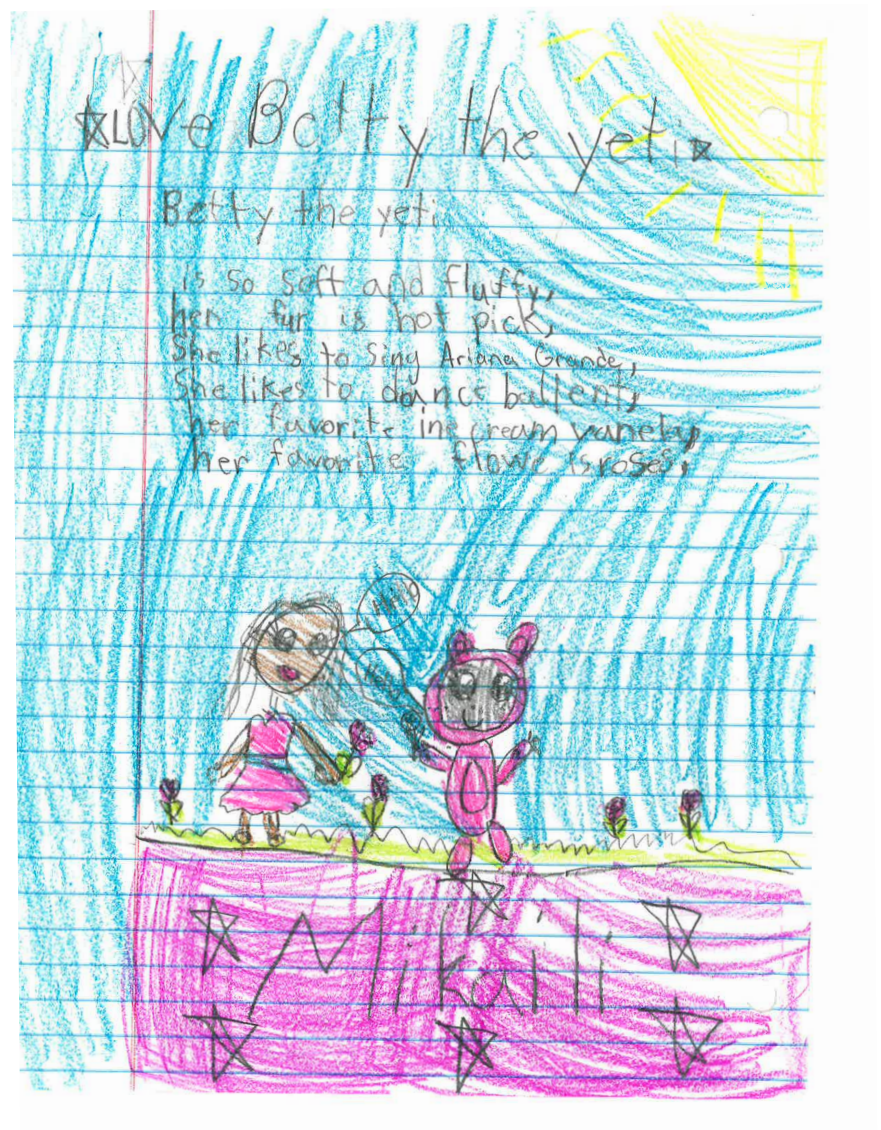 Love Betty the yeti
Betty the yeti
is so soft and fluffy,
her fur is hot pick,
She likes to sing Ariana Grande,
She likes to dance ballent,
her favorite ine cream vanely,
her favorite flowe is roses,